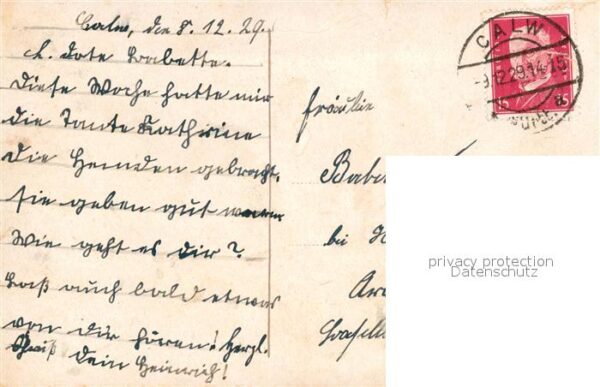 Calw, den 8.12.29.
L. Dote Babette.
Diese Woche hatte mir
die Tante Katharine
die Hemden gebracht.
Sie geben gut warm
Wie geht es Dir?
Laß auch bald etwas
von Dir hören! Herzl.
Gruß Dein Heinrich!
Fräulein
bei
CALW
-9.12.29.14-15
privacy protection
Datenschutz